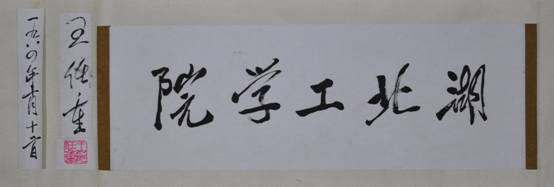 湖北工学院
王任重
一九八四年十月十一日